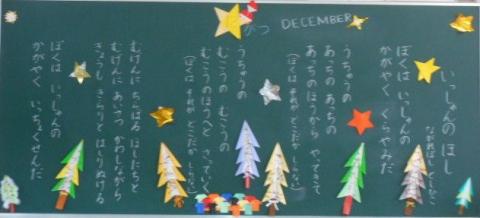 12がつ DECEMBER
いっしゅんの ほし
ぼくは いっしゅんの
かがやく くらやみだ
うちゅうの
あっちの あっちの
あっちのほうから やってきて
(ぼくは それが どこだか しらない)
うちゅうの
むこうの むこうの
むこうのほうへと さっていく
(ぼくは それが どこだか しらない)
むげんに ちらばる ほしたちと
むげんに あいさつ かわしながら
きょうも きらりと はしりぬける
ぼくは いっしゅんの
かがやく いっちょくせんだ